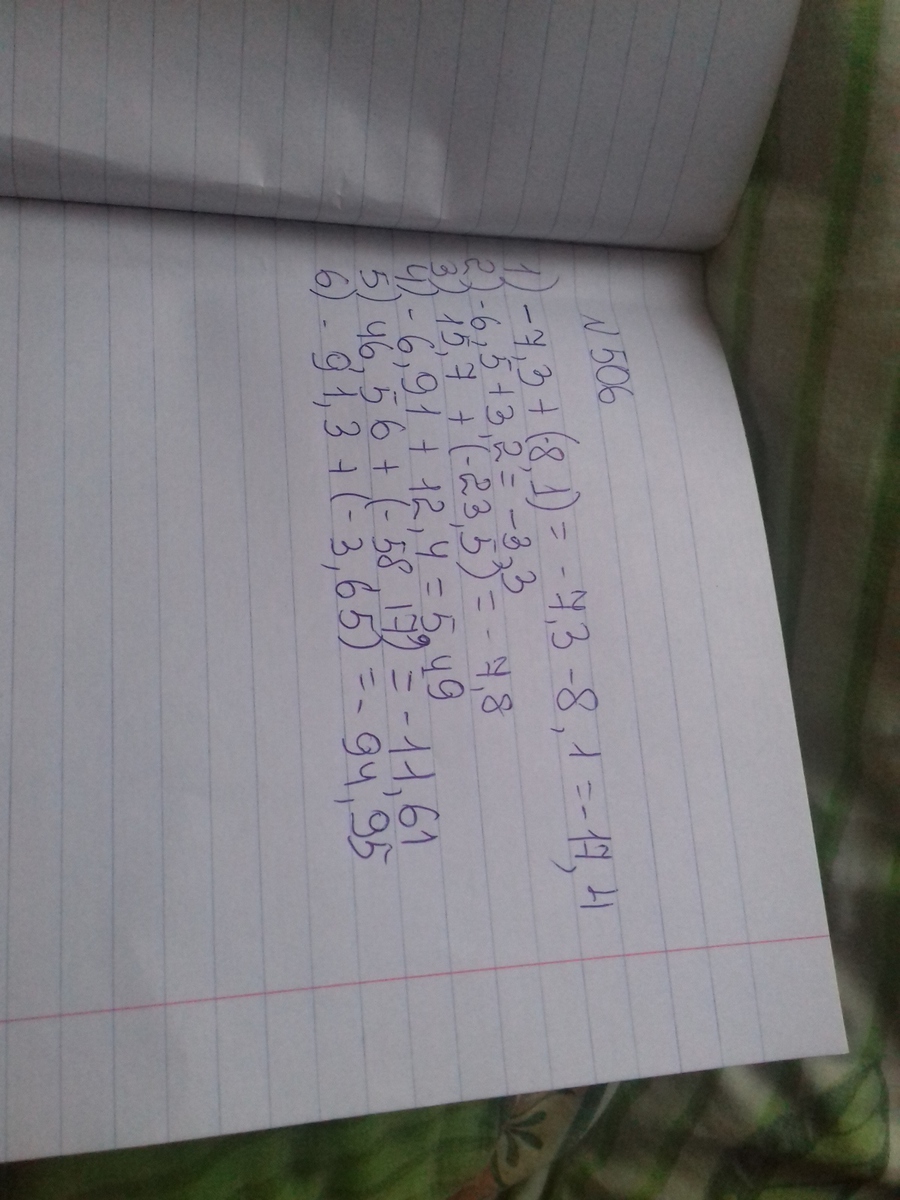 N 506
1) -7,3 + (-8,1) = -7,3 - 8,1 = -17,4
2) -6,5 + 3,2 = -3,3
3) 15,7 + (-23,5) = -7,8
4) -6,91 + 12,4 = 5,49
5) 46,56 + (-58,17) = -11,61
6) -91,3 + (-3,65) = -94,95